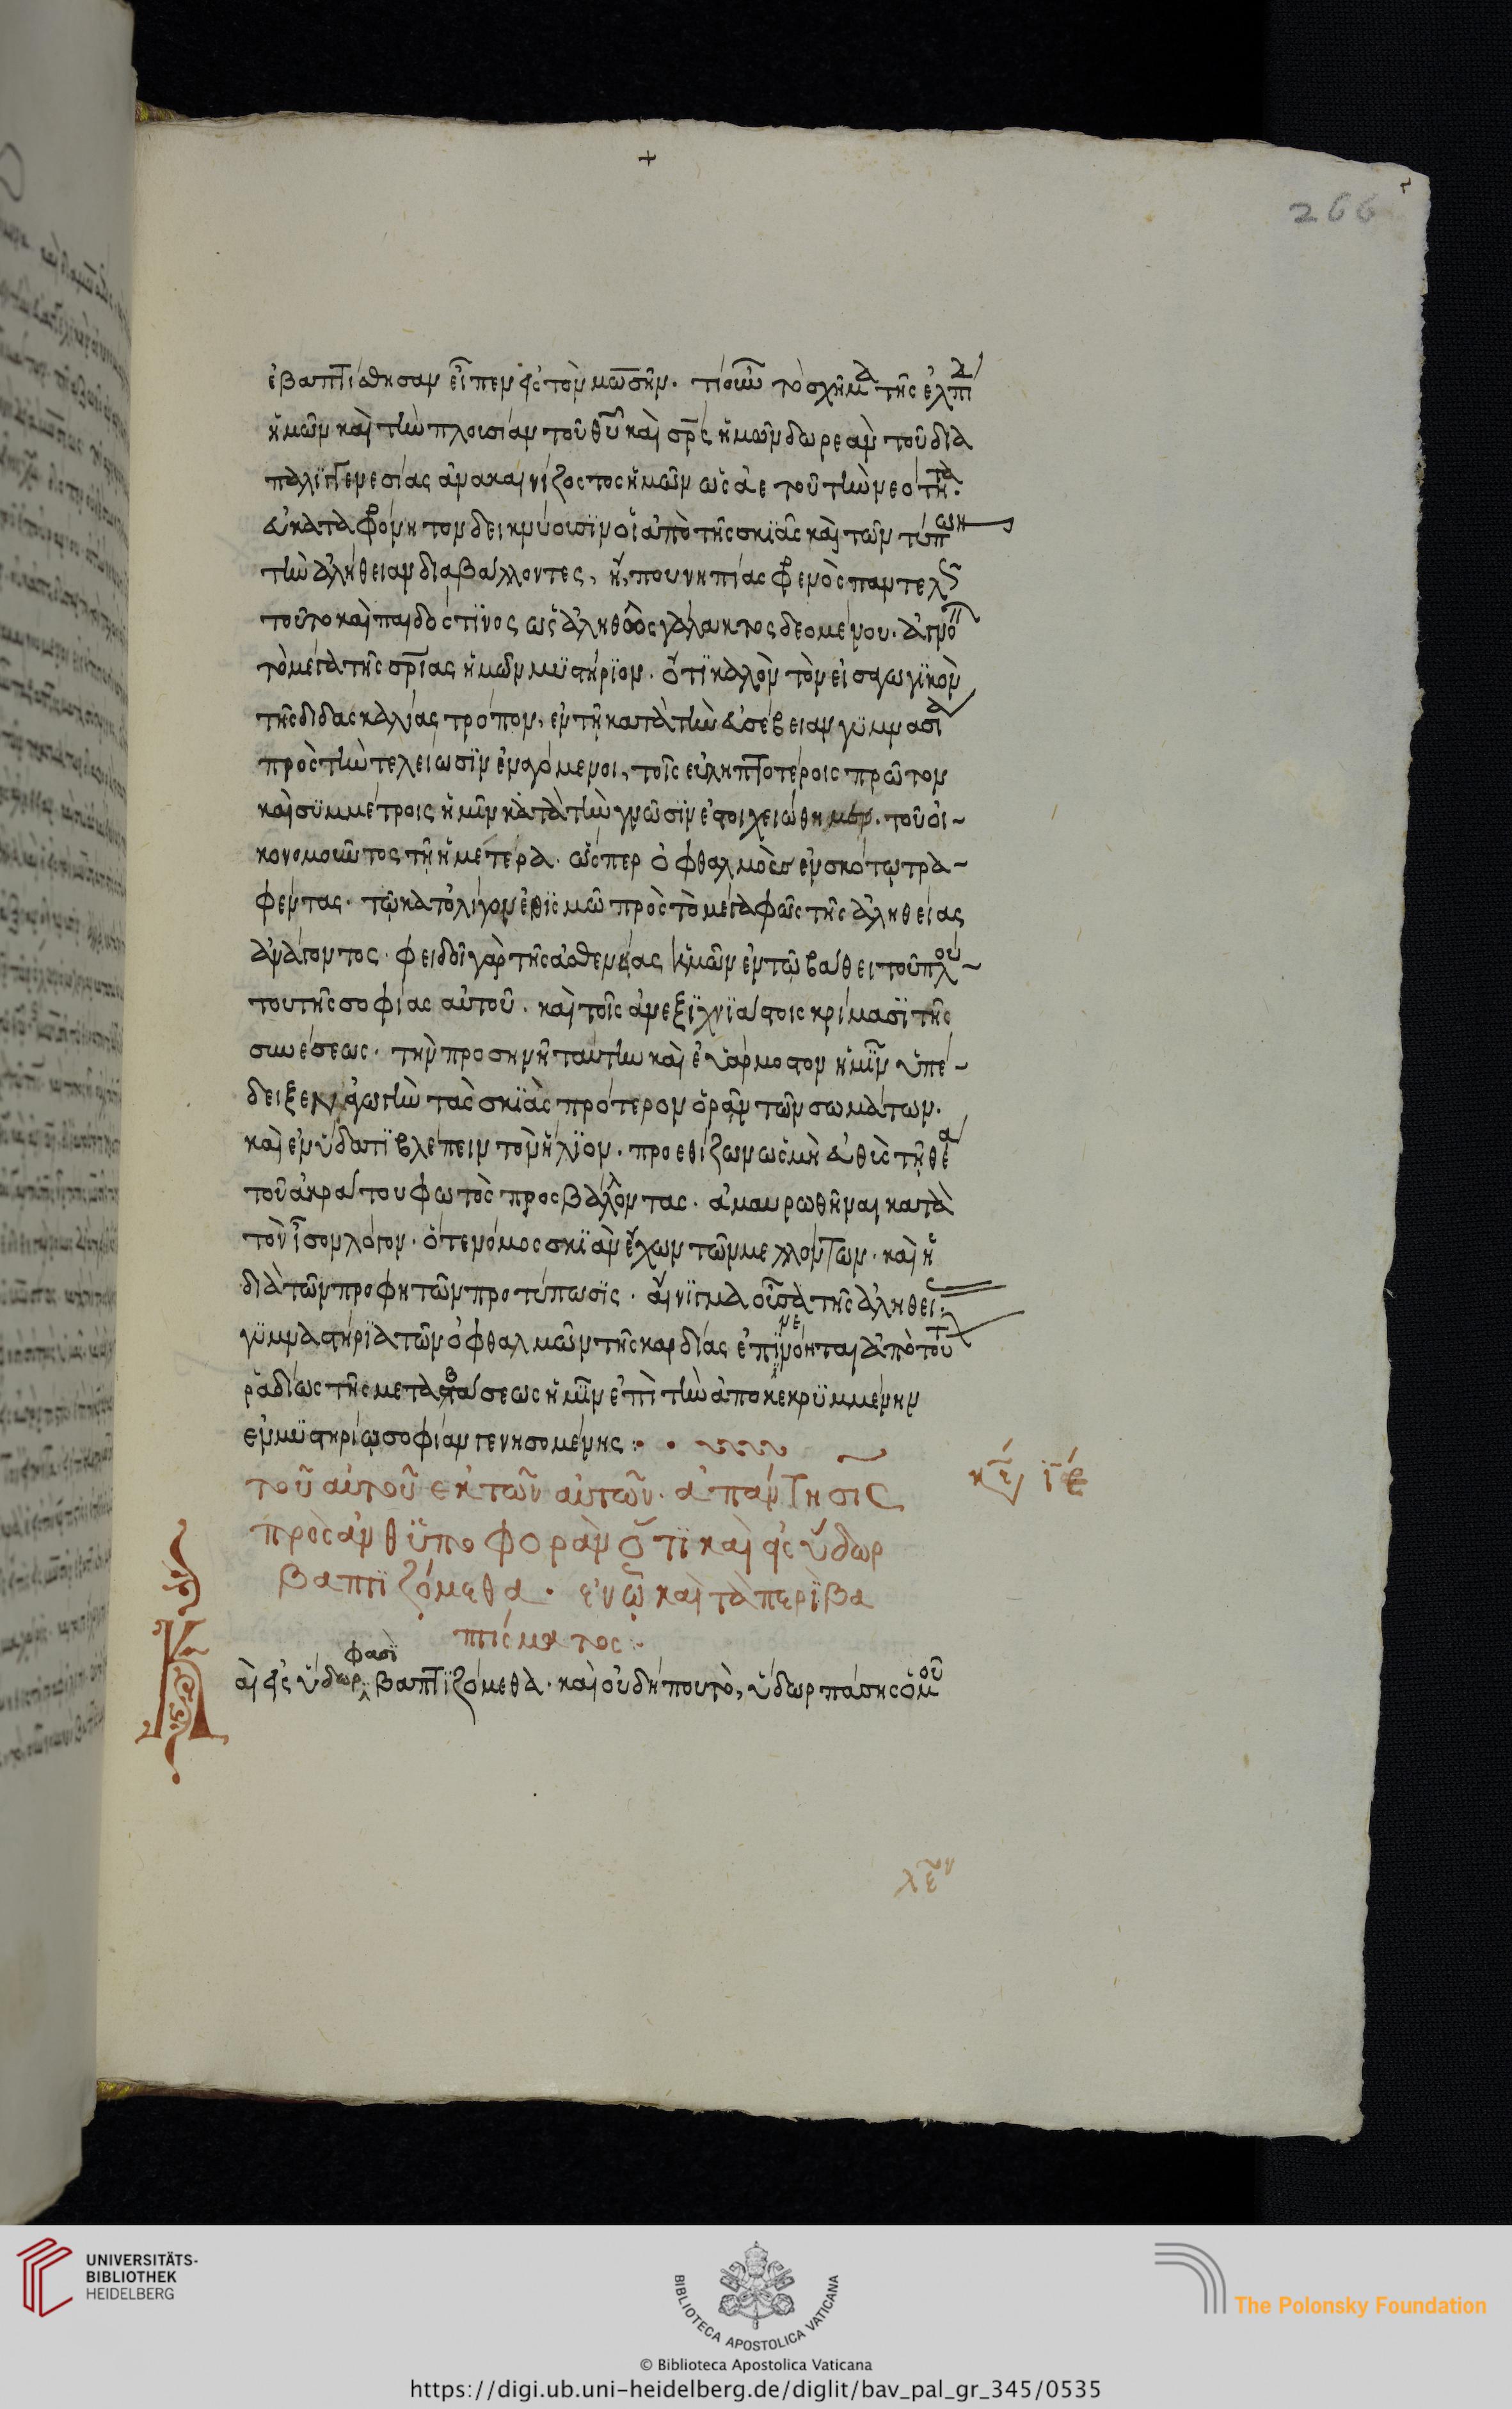 +
266
ἐβαπτίσθησαν εἶπεν εἰς τὸν μωσῆν. τί οὖν τὸ σχῆμα τῆς ἐλπίδ
ἡμῶν καὶ τὴν πλουσίαν τοῦ θυ καὶ σρς ἡμῶν δωρεὰν τοῦ διὰ
παλιγγενεσίας ἀνακαινίζοντος ἡμῶν ὡς ἀετοῦ τὴν νεότητα.
εὐκαταφρόνητον δεικνύουσϊν οἱ ἀπὸ τῆς σκιᾶς καὶ τῶν τύπων
τὴν ἀλήθειαν διαβάλλοντες, ἤ, που νηπίας φρενὸς παντελῶς
τοῦτο καὶ παιδός τινος ὡς ἀληθῶς γάλακτος δεομένου. ἀγνο
τὸ μέγα τῆς σρίας ἡμῶν μϋστήρϊον. ὅτϊ καλὸν τὸν εἰσαγωγϊκὸν
τῆς διδασκαλίας τρόπον, ἐν τῇ κατὰ τὴν εὐσέβειαν γϋμνασία
πρὸς τὴν τελείωσϊν ἐναγόμενοι, τοῖς εὐληπτοτέροις πρῶτον
καὶ σϋμμέτροις ἡμῖν κατὰ τὴν γνῶσϊν ἐστοιχειώθημεν. τοῦ οἰ-
κονομοῦντος τῇ ἡμέτερα. ὥσπερ ὀφθαλμοὺς ἐν σκότῳ τρα-
φέντας. τῷ κατ' ὀλίγον ἐθϊσμῶ πρὸς τὸ μέγα φῶς τῆς ἀληθείας
ἀνάγοντος. φειδοῖ γὰρ τῆς ἀσθενείας ἡμῶν ἐν τῷ βάθει τοῦ πλού-
του τῆς σοφίας αὐτοῦ. καὶ τοῖς ἀνεξϊχνϊάστοις κρίμασϊ τῆς
συνέσεως. τὴν προσηνῆ ταύτην καὶ εὐάρμοστον ἡμῖν ὑπέ-
δειξεν ἀγωγὴν τὰς σκϊὰς πρότερον ὁρᾶν τῶν σωμάτων.
καὶ ἐν ὕδατϊ βλέπειν τὸν ἥλϊον. προεθίζων ὡς μὴ εὐθὺς τῇ θέα
τοῦ ἀκράτου φωτὸς προσβαλόντας. ἀμαυρωθῆναι κατὰ
τὸν ἴσον λόγον. ὅτε νόμος σκϊὰν ἔχων τῶν μελλόντων. καὶ ἡ
διὰ τῶν προφητῶν προτύπωσϊς. αἴνϊγμα οὖσα τῆς ἀληθεί
γϋμναστήρϊα τῶν ὀφθαλμῶν τῆς καρδίας ἐπϊνενόηται ἀπὸ τού
ῥαδίως τῆς μεταβάσεως ἡμῖν ἐπὶ τὴν ἀποκεκρϋμμένην
ἐν μϋστηρίῳ σοφίαν γενησομένης:
τοῦ αὐτοῦ ἐκ τῶν αὐτῶν. ἀπάντησις
πρὸς ἀνθϋποφορὰν ὅτϊ καὶ εἰς ὕδωρ
βαπτϊζόμεθα. ἐν ᾧ καὶ τὰ περὶ βα
πτίσματος:
Καὶ εἰς ὕδωρ φασὶ βαπτϊζόμεθα. καὶ οὐ δήπου τὸ, ὕδωρ πάσης ὁμοῦ
κε ιε
UNIVERSITÄTS-
BIBLIOTHEK
HEIDELBERG
BIBLIOTECA APOSTOLICA VATICANA
The Polonsky Foundation
© Biblioteca Apostolica Vaticana
https://digi.ub.uni-heidelberg.de/diglit/bav_pal_gr_345/0535